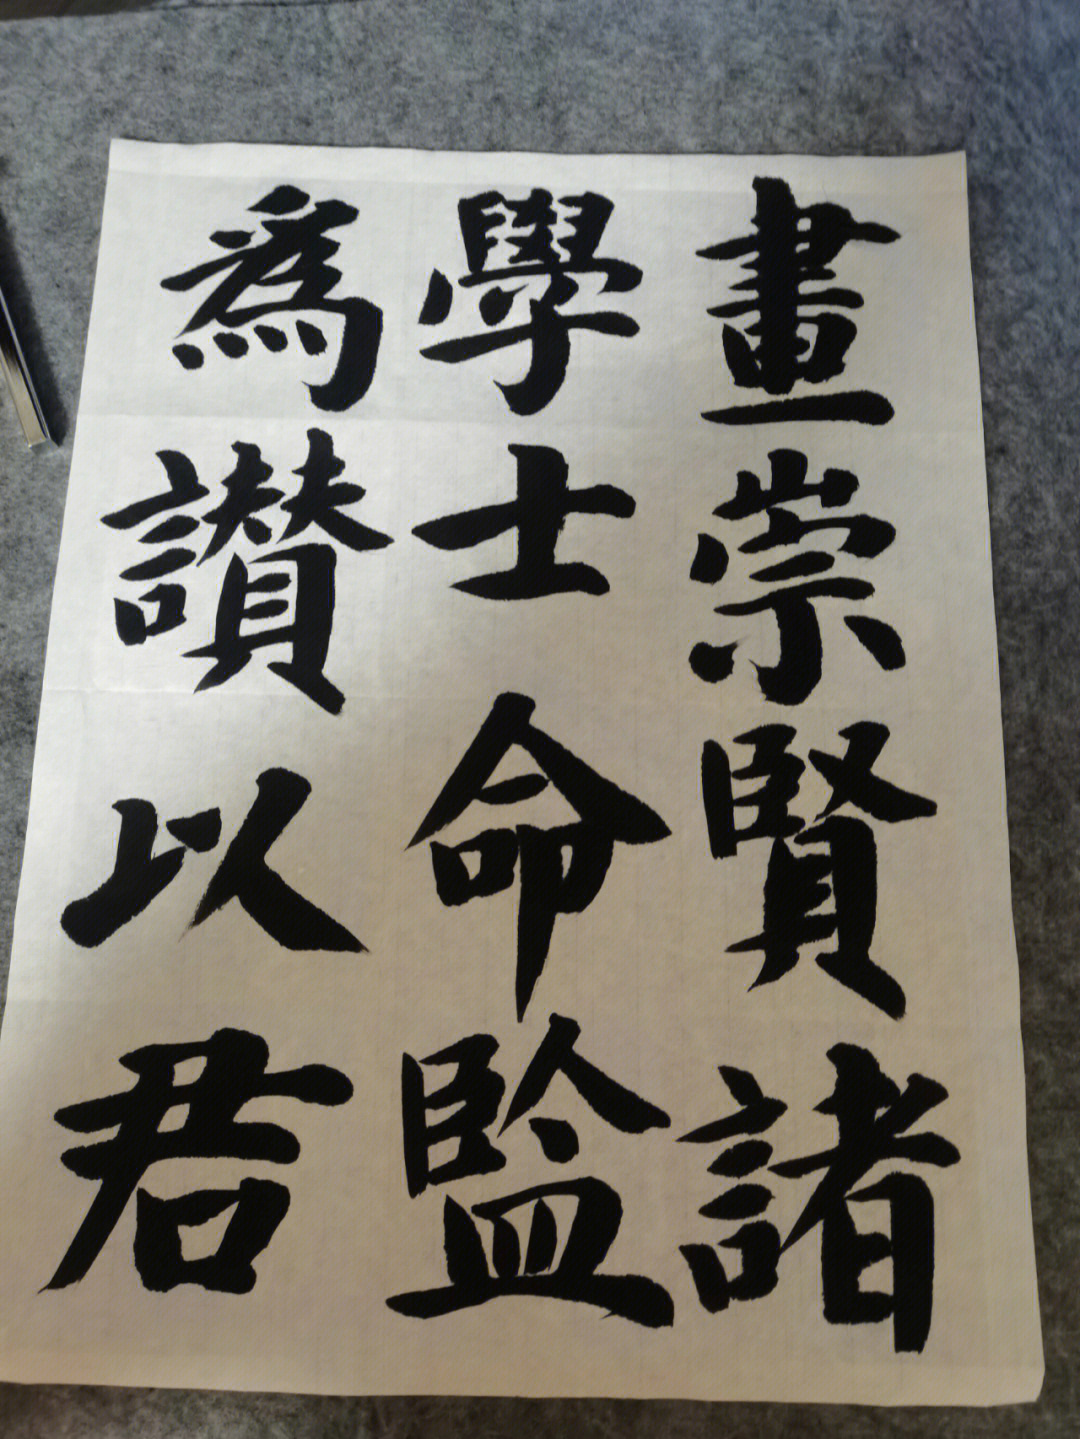 畫崇賢諸
學士命監
爲讃以君